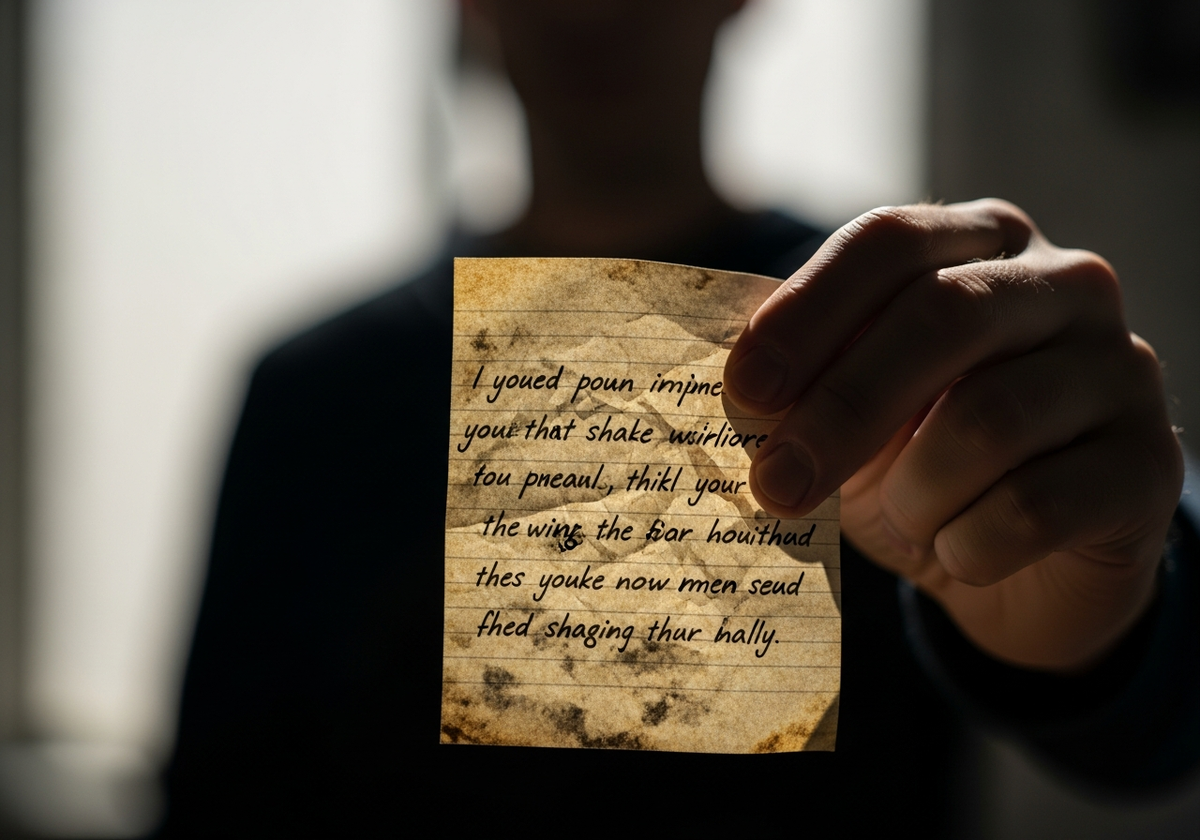 I youed poun impine
your that shake wsirliore
tou pneaul, thikl your
the wing the fiar houithud
thes youke now nmen seud
fhed shaging thur hally.